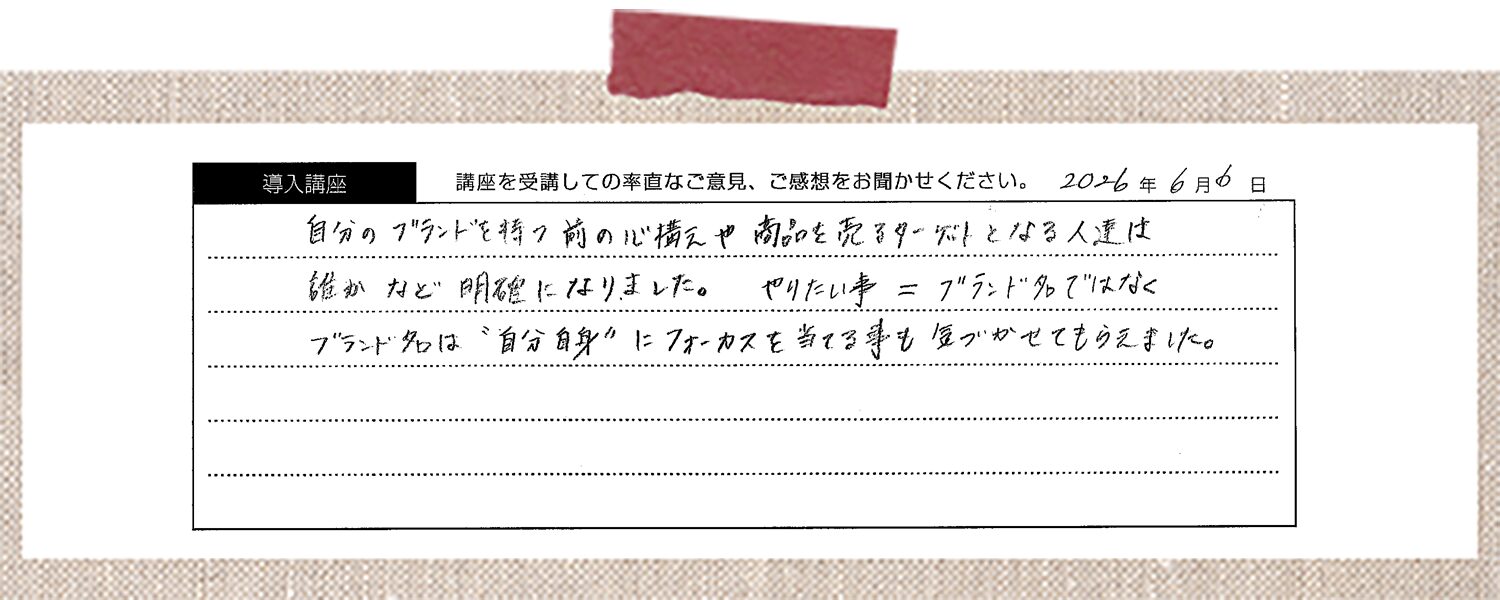 導入講座 講座を受講しての率直なご意見、ご感想をお聞かせください。 2026年6月6日
自分のブランドを持つ前の心構えや商品を売るターゲットとなる人達は
誰かなど明確になりました。 やりたい事 = ブランド名ではなく
ブランド名は〝自分自身〟にフォーカスを当てる事も気づかせてもらえました。